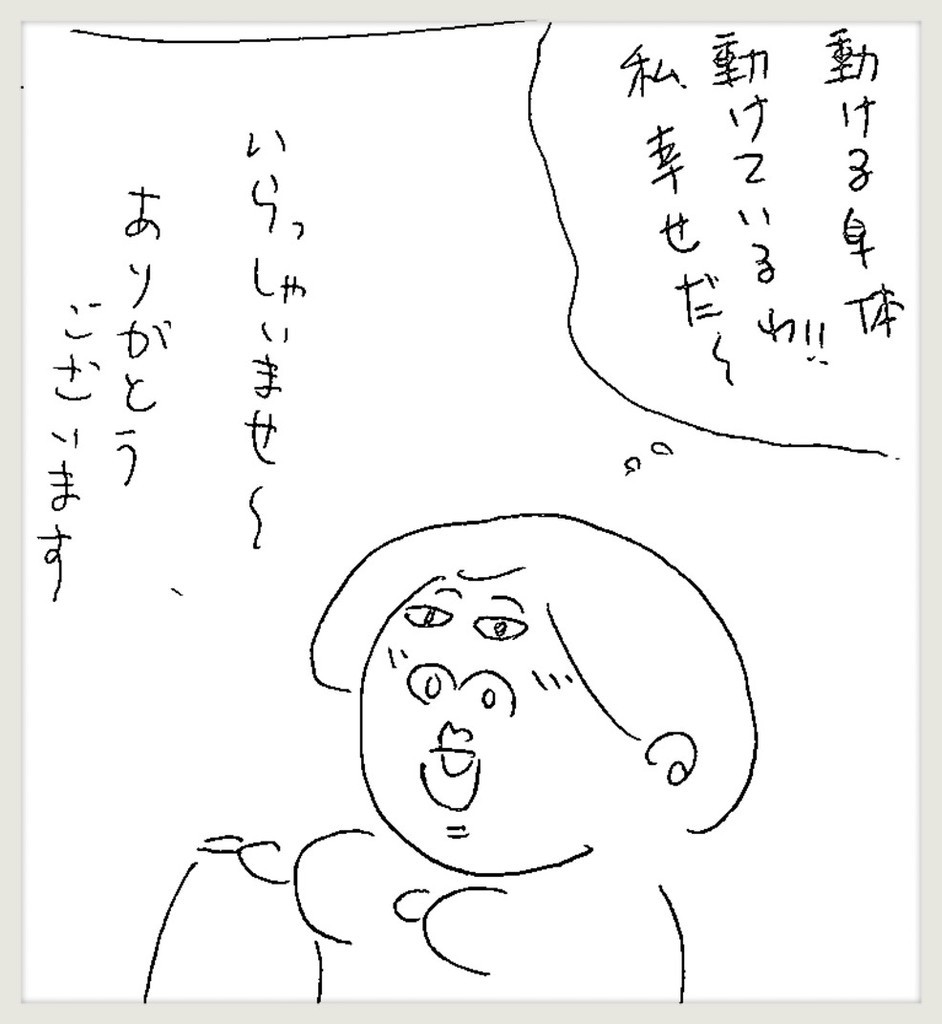 動ける身体
動けているわ!!
私 幸せだ〜
いらっしゃいませ〜
ありがとう
ございます